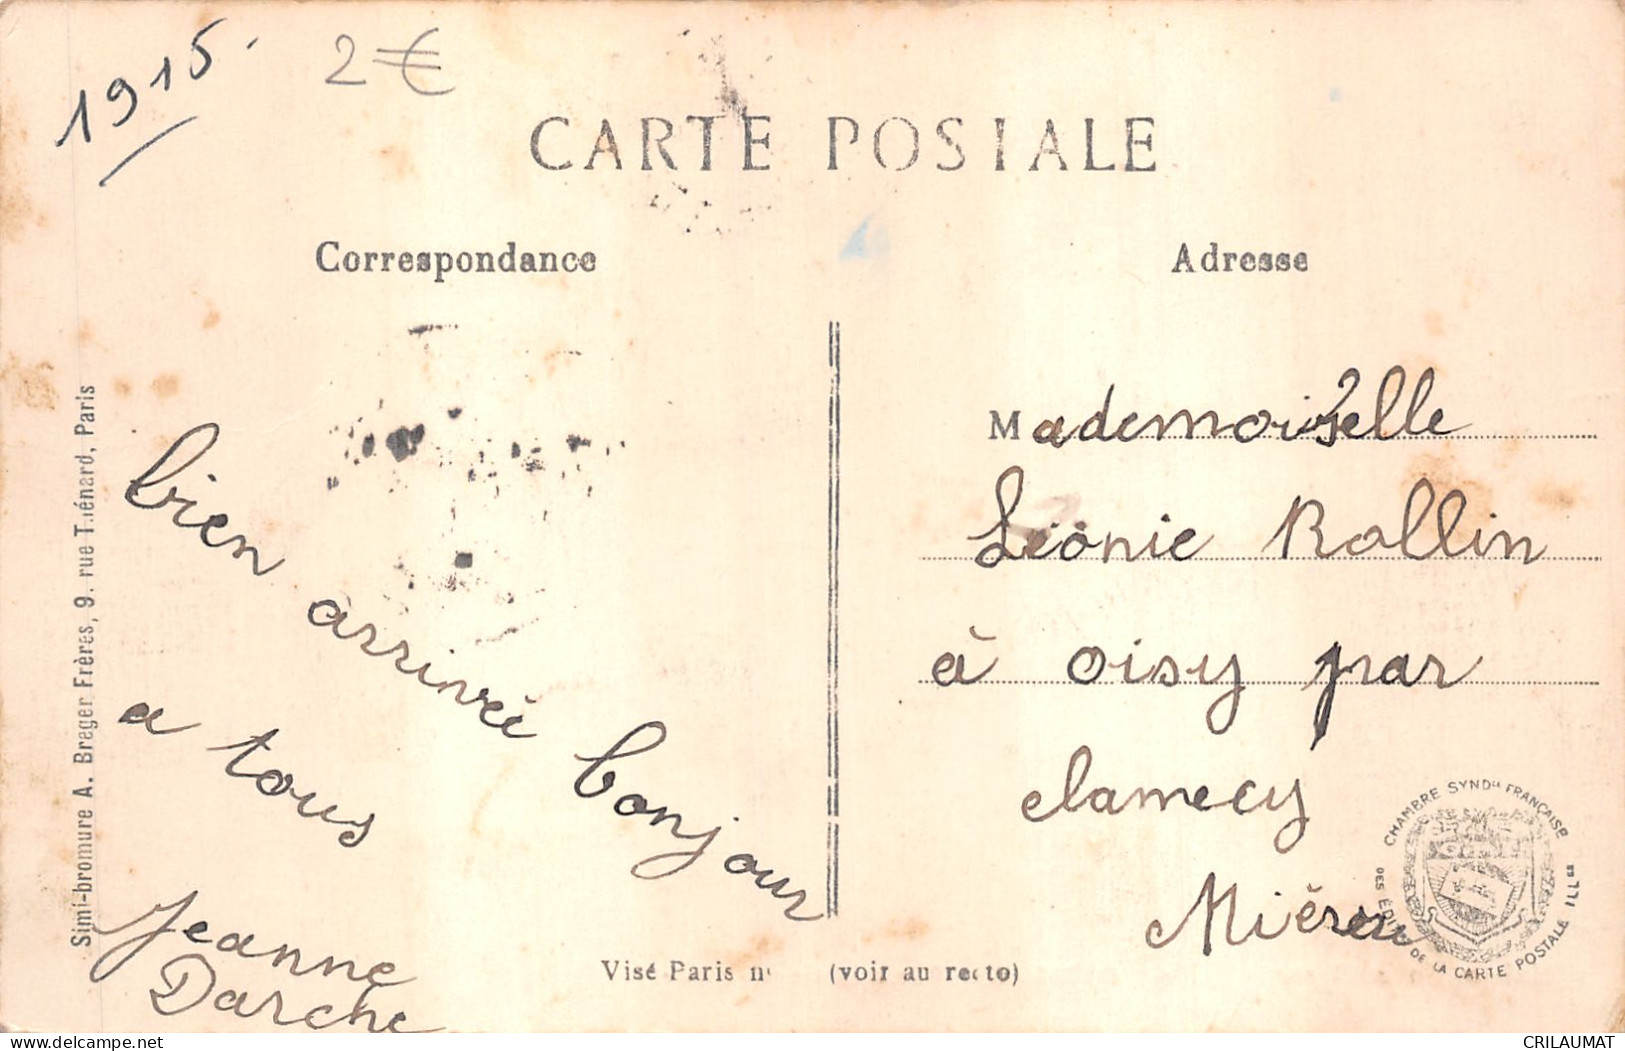 1915.
2€
CARTE POSTALE
Correspondance
Adresse
bien arrivée bonjour
a tous
Jeanne
Darche
Mademoiselle
Léonie Rollin
à oisy par
clamecy
Simi-bromure A. Breger Frères, 9. rue Thénard, Paris
Visé Paris n° (voir au recto)
CHAMBRE SYNDle FRANÇAISE
DES ÉDITrs DE LA CARTE POSTALE ILLée
delcampe.net
CRILAUMAT